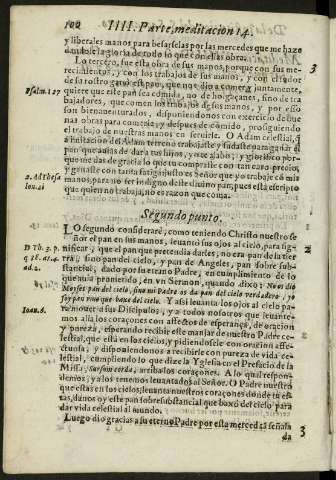 102 IIII. Parte, meditacion 14.
y liberales manos para besarselas por las mercedes que me hazo
dandole la gloria de todo lo que con ellas obra.
Lo tercero, fue esta obra de sus manos, porque con sus me- 3
recimientos, y con los trabajos de sus manos, y con el sudor
de su rostro ganò este pan, que nos diò a comer, y juntamente,
Psalm. 127 quiere que este pan sea comida, no de holgaçanes, sino de tra
bajadores, que comen los trabajos de sus manos, y por esso
son bienaventurados, disponiendonos con exercicio de bue
nas obras para comerle, y despues de comido, prosiguiendo
el trabajo de nuestras manos en servirle. O Adam celestial, que
a imitacion del Adam terreno trabajaste y sudaste para ganar el
pan que avias de dar a tus hijos, y a mi
me das de gracia lo que tu compraste con tan caro precio,
y ganaste con tanta fatiga, justo es Señor que yo trabaje con mis
2. Ad Thess manos, para no ser indigno de su divino pan, pues està escripto
que quien no trabaja, no es razon que coma.
Segundo punto.
LO segundo considerarè, como teniendo Christo nuestro se
ñor el pan en sus manos, levantò sus ojos al cielo, para sig- 2
D Th. 3. p. nificar, que el pan que pretendia darles, no era pan de la tier
ra, sino pan del cielo, y pan de Angeles, pan sobre sub-
ad. 2. stancial, dado por su eterno Padre, en cumplimiento de lo
que avia prometido, en un Sermon, quando dixo: No os diò
Moyses pan del cielo, sino mi Padre os da pan del cielo verdadero, yo
soy pan vivo que baxò del cielo. Y assi levanta los ojos al cielo pa-
Ioan. 6. ra mover a sus Discipulos, y a todos nosotros que levante-
mos a llà los coraçones con affectos de esperança, de oracion
y pureza, esperando recibir este manjar de nuestro Padre ce-
lestial, que està en los cielos, y pidiendosele con oracion affe-
ctuosa, y disponiendonos a recibirle con pureza de vida ce-
lestial, cumpliendo lo que dize la Yglesia en el Prefacio de la
Missa, Sursum corda, arriba los coraçones. A lo qual respon-
demos; ya los tenemos levantados al Señor. O Padre nuestro
que estàs en los cielos, levanta nuestros coraçones donde tu es-
tas, danos oy este pan sobresubstancial que baxò del cielo para
dar vida celestial al mundo.
Luego dio gracias a su eterno Padre por esta merced tã señala 3
da